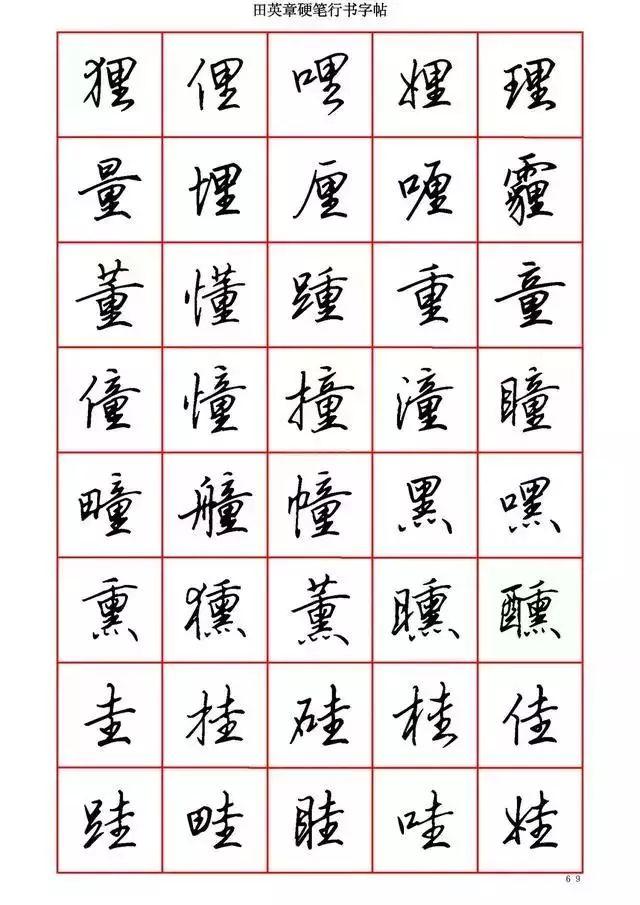 田英章硬笔行书字帖
狸 俚 哩 娌 理
量 埋 厘 喱 霾
董 懂 踵 重 童
僮 憧 撞 潼 瞳
疃 艟 幢 黑 嘿
熏 獯 薰 曛 醺
圭 挂 硅 桂 佳
跬 畦 眭 哇 娃
69